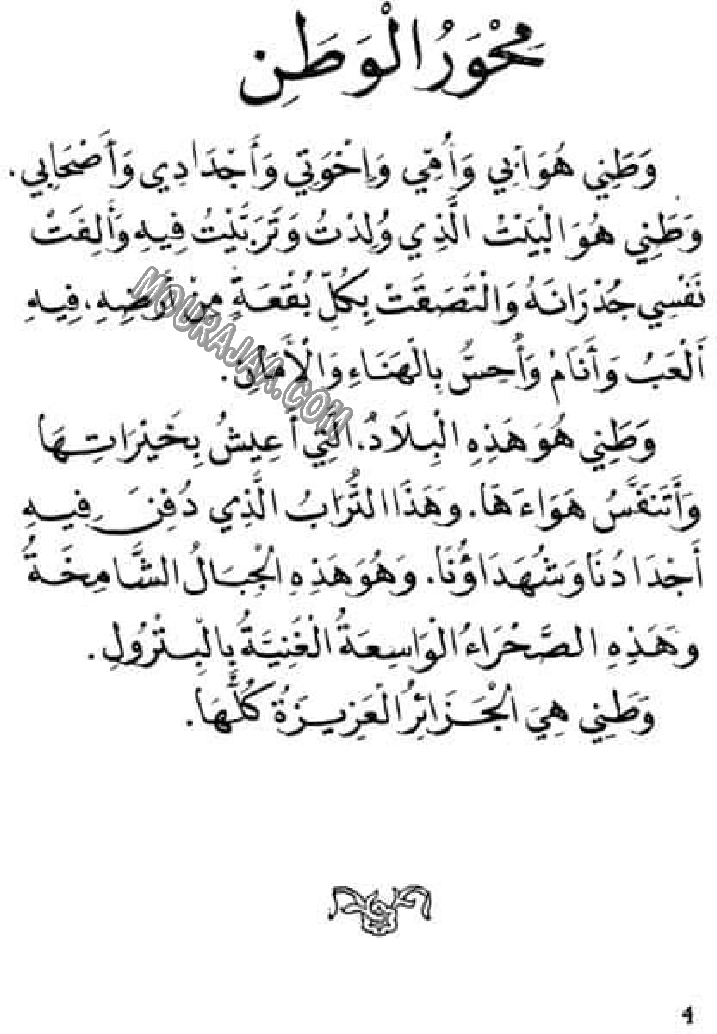 مِحْوَرُ الْوَطَنِ
وَطَنِي هُوَ أَبِي وَأُمِّي وَإِخْوَتِي وَأَجْدَادِي وَأَصْحَابِي.
وَطَنِي هُوَ الْبَيْتُ الَّذِي وُلِدْتُ وَتَرَبَّيْتُ فِيهِ وَأَلِفَتْ
نَفْسِي جُدْرَانَهُ وَالْتَصَقَتْ بِكُلِّ بُقْعَةٍ مِنْ أَرْضِهِ، فِيهِ
أَلْعَبُ وَأَنَامُ وَأُحِسُّ بِالْهَنَاءِ وَالْأَمَانِ.
وَطَنِي هُوَ هَذِهِ الْبِلَادُ، الَّتِي أَعِيشُ بِخَيْرَاتِهَا
وَأَتَنَفَّسُ هَوَاءَهَا. وَهَذَا التُّرَابُ الَّذِي دُفِنَ فِيهِ
أَجْدَادُنَا وَشُهَدَاؤُنَا. وَهُوَ هَذِهِ الْجِبَالُ الشَّامِخَةُ
وَهَذِهِ الصَّحْرَاءُ الْوَاسِعَةُ الْغَنِيَّةُ بِالْبِتْرُولِ.
وَطَنِي هِيَ الْجَزَائِرُ الْعَزِيزَةُ كُلُّهَا.
MOURAJAA.COM
4